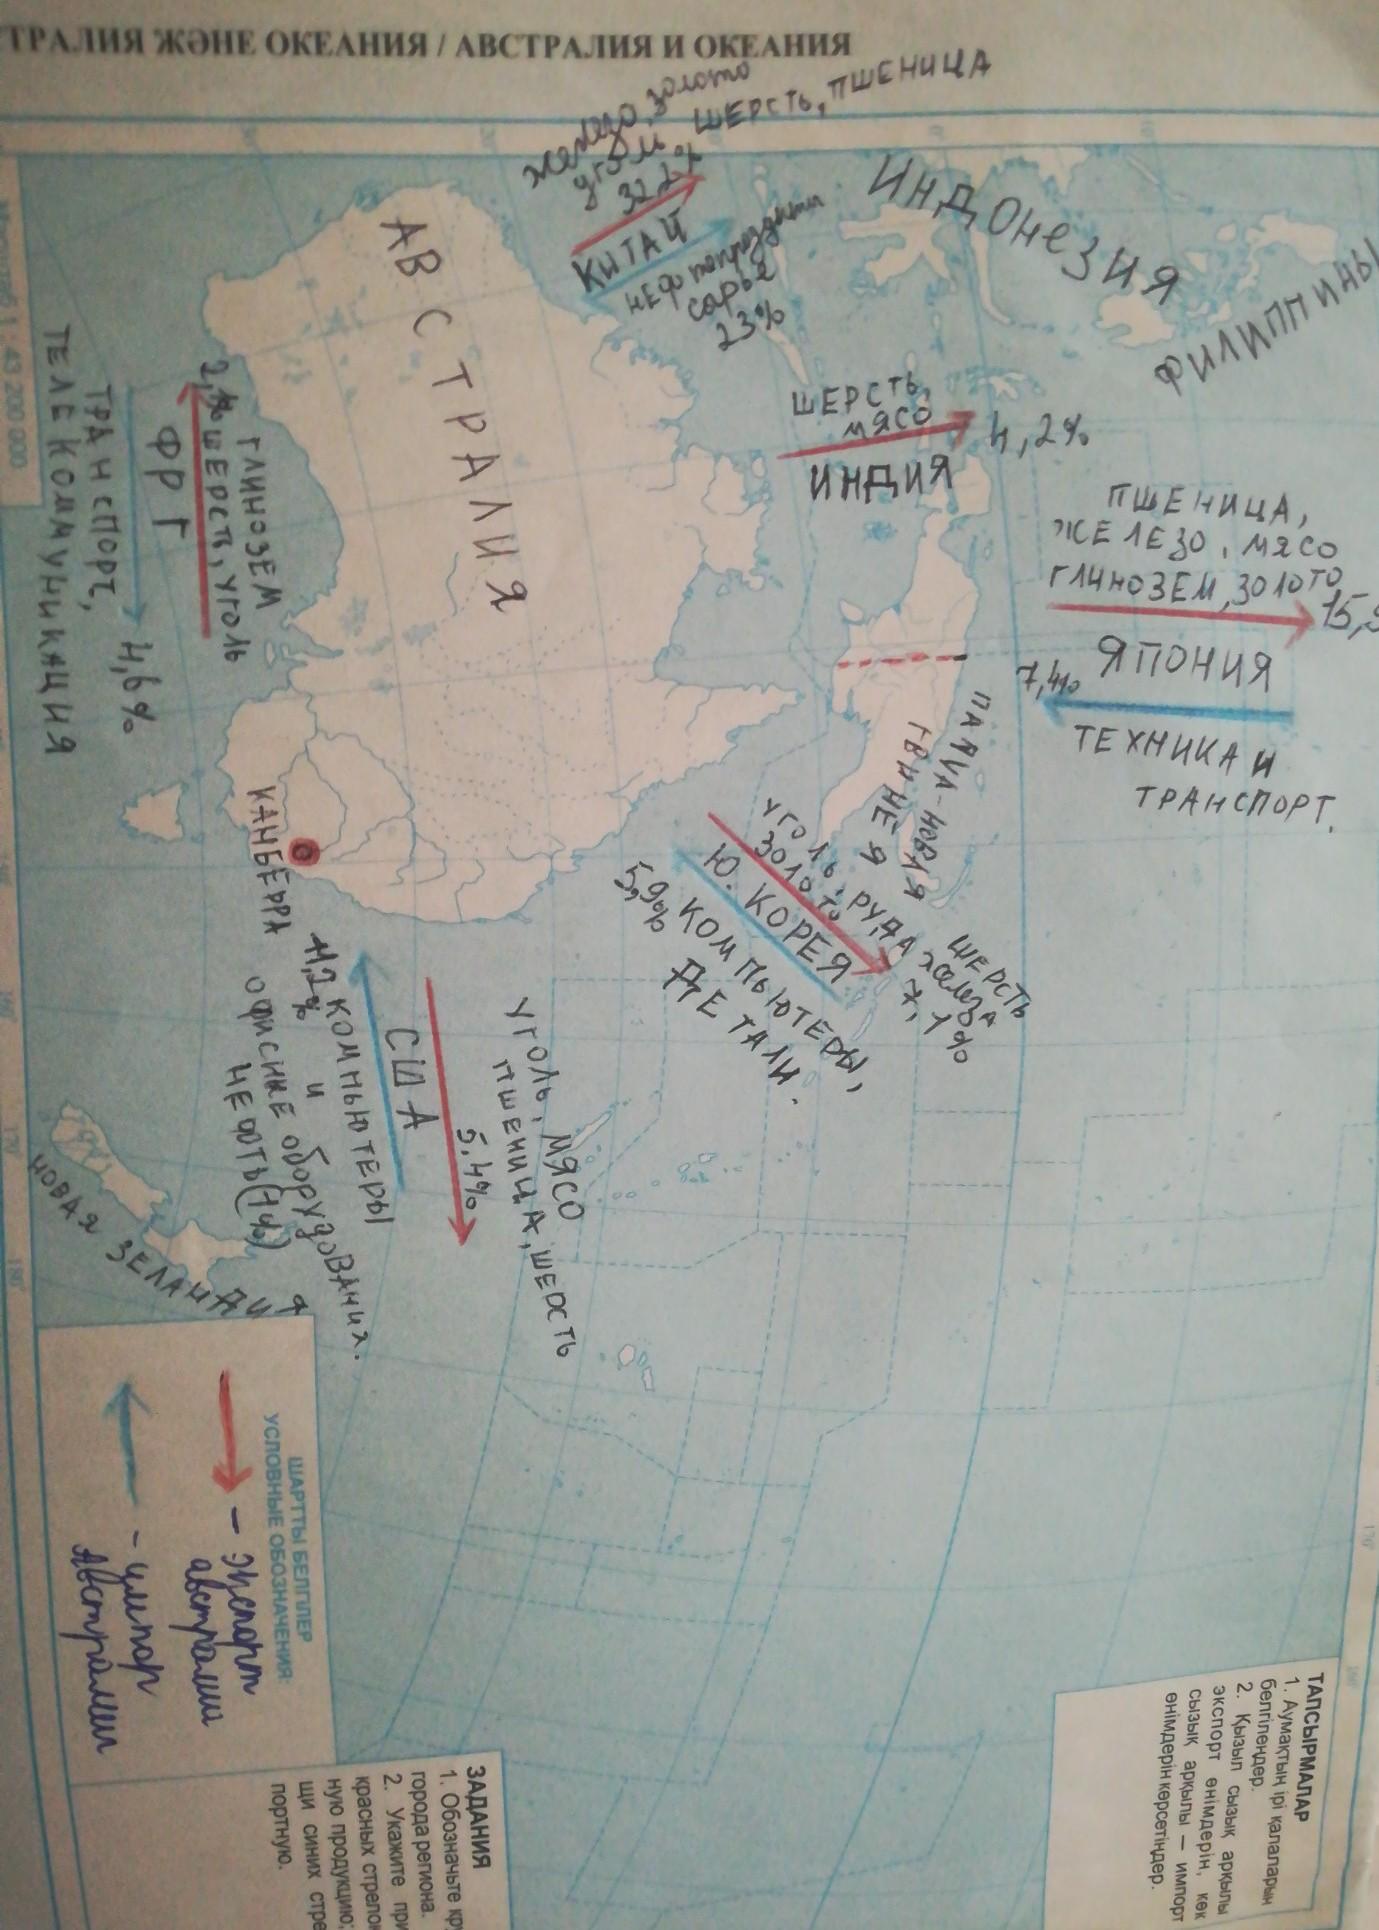 ТРАЛИЯ ЖӘНЕ ОКЕАНИЯ / АВСТРАЛИЯ И ОКЕАНИЯ
железо, золото
уголь, ШЕРСТЬ, ПШЕНИЦА
32,2%
КИТАЙ
НЕФтепродукты
сырьё
23%
ИНДОНЕЗИЯ
ФИЛИППИНЫ
АВСТРАЛИЯ
ШЕРСТЬ,
МЯСО
4,2%
ИНДИЯ
ПШЕНИЦА,
ЖЕЛЕЗО, МЯСО
ГЛИНОЗЕМ, ЗОЛОТО
15,9
ЯПОНИЯ
7,4%
ТЕХНИКА И
ТРАНСПОРТ.
ПАПУА-НОВАЯ
ГВИНЕЯ
ГЛИНОЗЕМ
ШЕРСТЬ, УГОЛЬ
ФРГ
4,6%
ТРАНСПОРТ,
ТЕЛЕКОММУНИКАЦИЯ
Масштаб 1 : 43 200 000
КАНБЕРРА
ШЕРСТЬ
УГОЛЬ, РУДА железа
ЗОЛОТО
7,1%
Ю. КОРЕЯ
5,9% КОМПЬЮТЕРЫ,
ДЕТАЛИ.
УГОЛЬ, МЯСО
ПШЕНИЦА, ШЕРСТЬ
5,4%
США
11,2% КОМПЬЮТЕРЫ
И
ОФИСНОЕ ОБОРУДОВАНИЯ.
НЕФТЬ(1%)
НОВАЯ ЗЕЛАНДИЯ
170°
180°
170°
160°
ШАРТТЫ БЕЛГІЛЕР
УСЛОВНЫЕ ОБОЗНАЧЕНИЯ:
- экспорт
австралии
- импор
Австралии
ТАПСЫРМАЛАР
1. Аумақтың ірі қалаларын
белгілеңдер.
2. Қызыл сызық арқылы
экспорт өнімдерін, көк
сызық арқылы – импорт
өнімдерін көрсетіңдер.
ЗАДАНИЯ
1. Обозначьте кру
города региона.
2. Укажите при
красных стрелок
ную продукцию;
щи синих стре
портную.